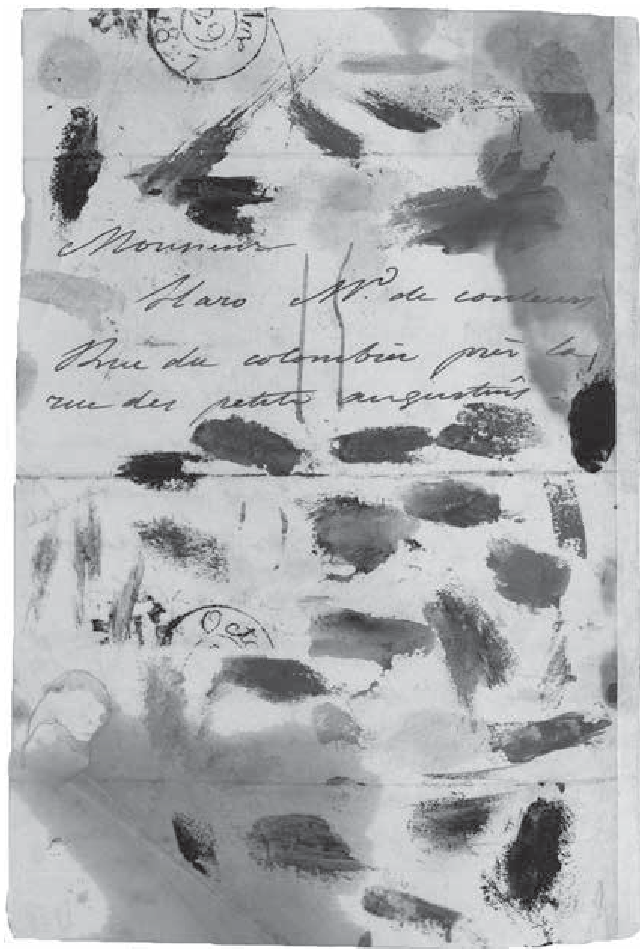 29
Monsieur
Haro Md. de couleurs
Rue du colombier près la
rue des petits augustins
15
Oct